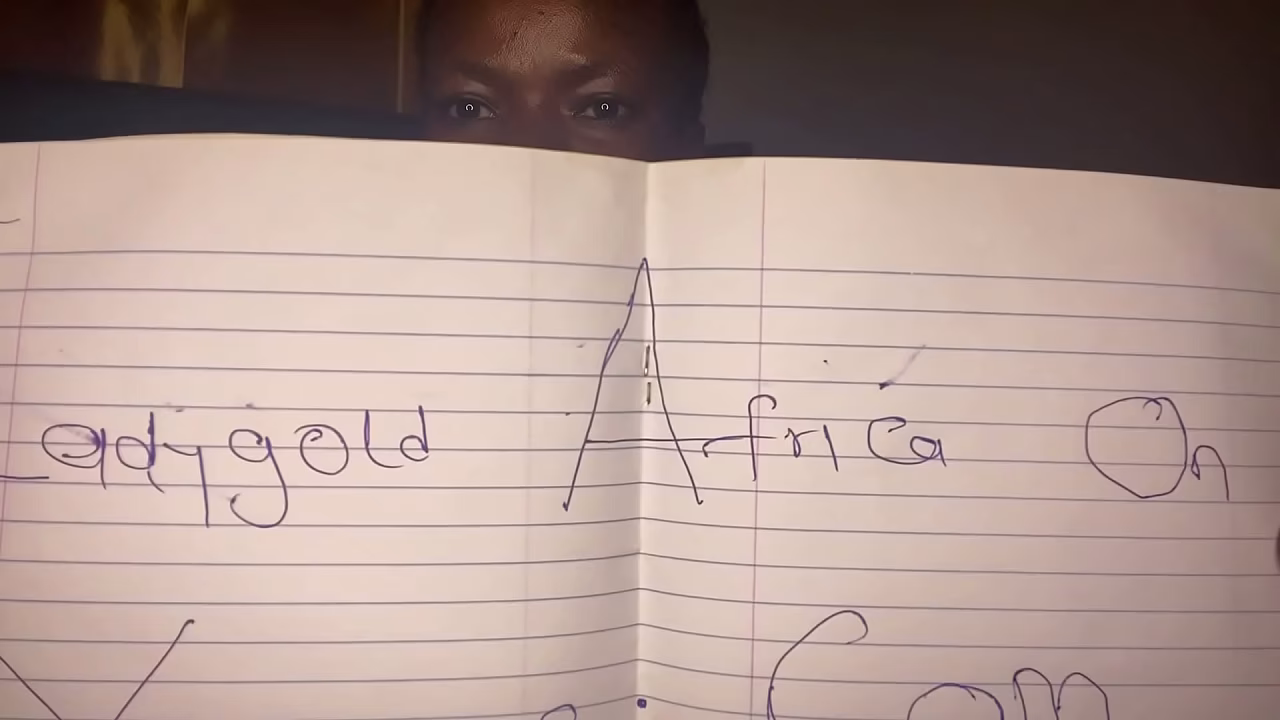 Ladygold Africa On
X . Com